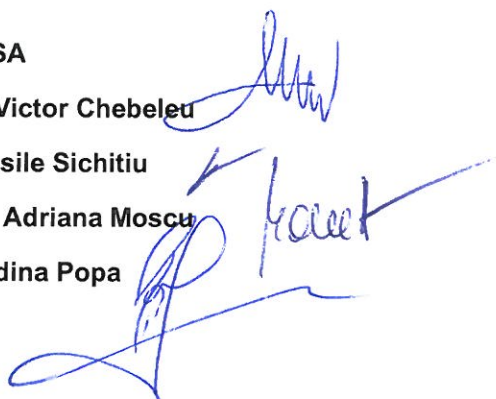 SA
Victor Chebeleu
sile Sichitiu
Adriana Moscu
dina Popa